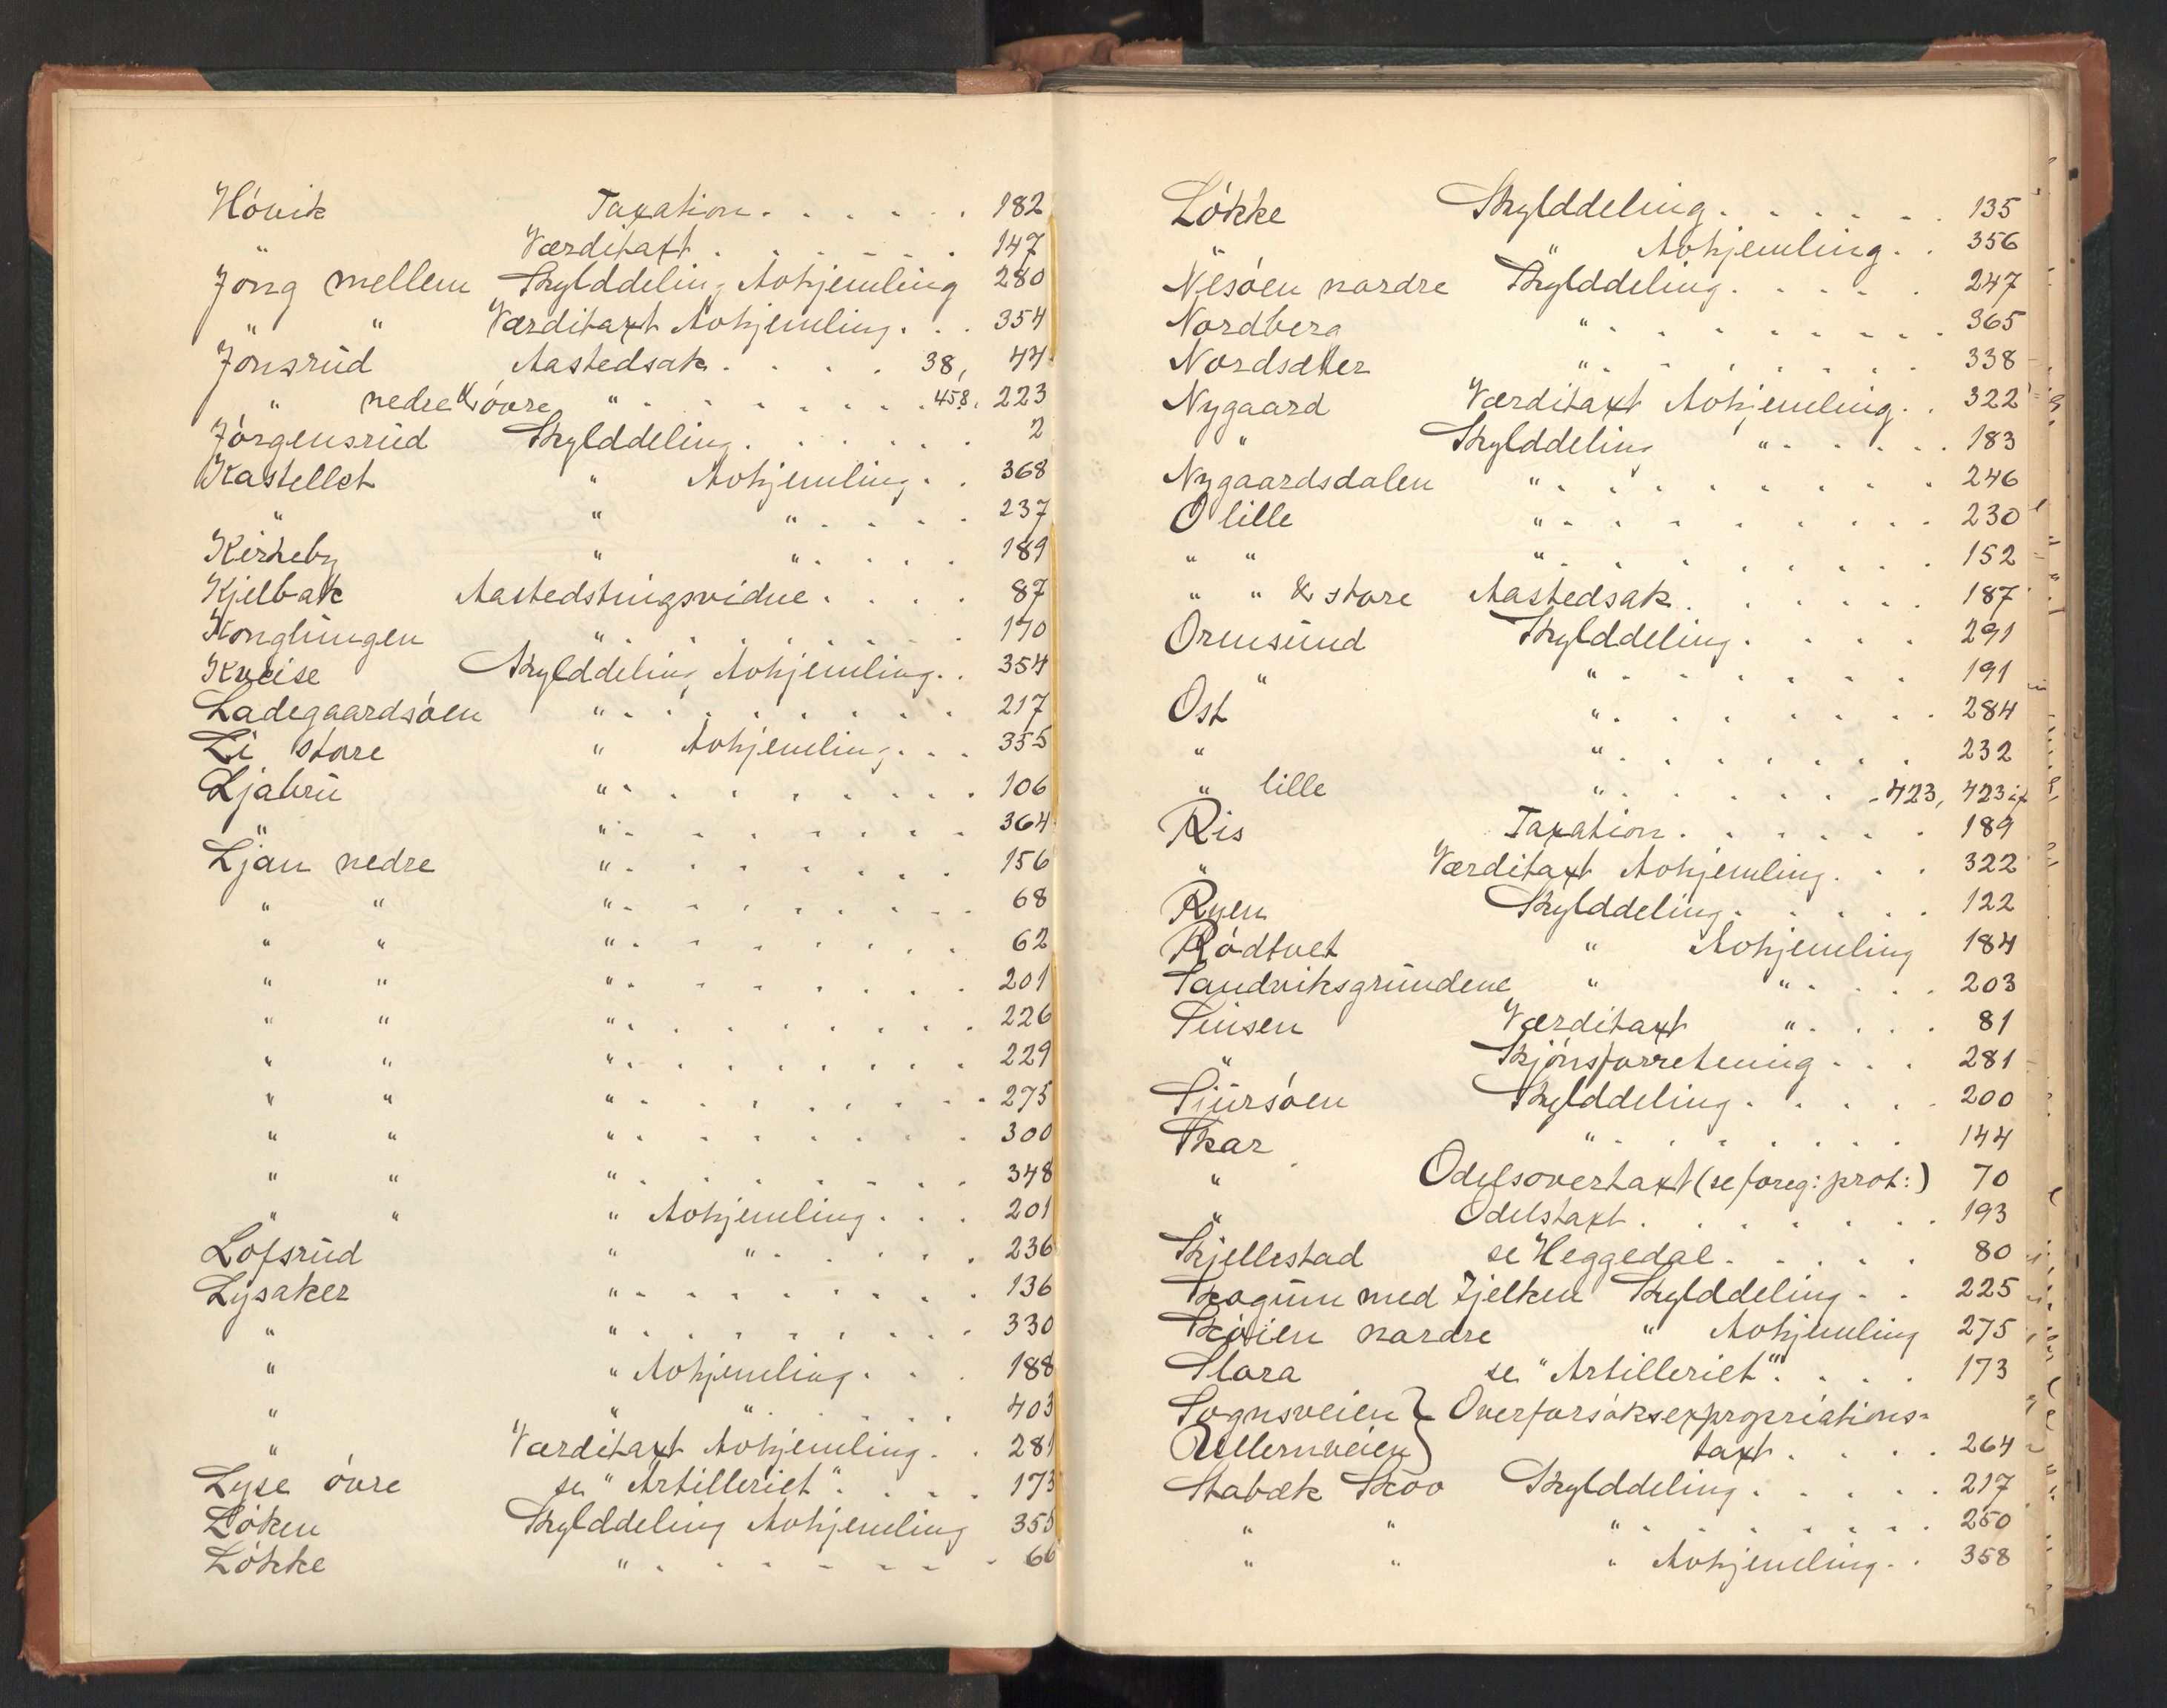 Hóvik Taxation . . . . . . 182
" Værditaxt . . . . . . 147
Jóng mellem Skylddeling Avhjemling 280
" " Værditaxt Avhjemling . . . 354
Jónsrud Aastedsak . . . . 38, 44
" nedre & óvre " . . . . . . . 458, 223
Jórgensrud Skylddeling . . . . . . 2
Kastellet " Avhjemling . . 368
" " " . . . . 237
Kirkeby " " . . . . 189
Kjelbak Aastedstingsvidne . . . . 87
Konglungen " . . . . . . . . . 170
Kveise Skylddeling Avhjemling . . 354
Ladegaardsóen " . . . . . . . . . 217
Li store " Avhjemling . . . 355
Ljabru " . . . . . . . . 106
" " . . . . . . . 364
Ljan nedre " . . . . . . . 156
" " " . . . . . . . . 68
" " " . . . . . . . 62
" " " . . . . . . . 201
" " " . . . . . . . . 226
" " " . . . . . . . 229
" " " . . . . . . . . 275
" " " . . . . . . . 300
" " " . . . . . . . 348
" " " Avhjemling . . . 201
Lofsrud " " . . . . . 236
Lysaker " . . . . . . . . 136
" " . . . . . . . . 330
" " Avhjemling . . . 188
" " " . . . . . 403
" Værditaxt Avhjemling . . 281
Lyse óvre se "Artilleriet" . . . . 173
Lóken Skylddeling Avhjemling 355
Lókke " . . . . . . . 66
Lókke Skylddeling . . . . . . 135
" " Avhjemling . . 356
Nesóen nordre Skylddeling . . . . . 247
Nordberg " . . . . . . . . 365
Nordsæter " . . . . . . . 338
Nygaard Værditaxt Avhjemling . . 322
" Skylddeling " . . . . . 183
Nygaardsdalen " . . . . . . . . 246
O lille " . . . . . . . . 230
" " " . . . . . . . . 152
" " & store Aastedsak . . . . . . 187
Ormsund Skylddeling . . . . 291
" " . . . . . . 191
Ost " . . . . . . . 284
" " . . . . . . 232
" lille " . . . . . . . 423, 423
Ris Taxation . . . . . . 189
" Værditaxt Avhjemling . . . 322
Ryen Skylddeling . . . . . 122
Ródtvet " Avhjemling 184
Sandviksgrundene " " . . . . 203
Sinsen Værditaxt " . . . . 81
" Skjónsforretning . . . 281
Sjursóen Skylddeling . . . . . 200
Skar " . . . . . . . 144
" Odelsovertaxt (se foreg: prot:) 70
" Odelstaxt . . . . . . . 193
Skjellestad se Heggedal . . . . . 80
Skogum med Fjelken Skylddeling . . 225
Skóien nordre " Avhjemling 275
Slora se "Artilleriet" . . . . 173
Sognsveien } Overforsóksexpropriations-
Ullernveien } taxt . . . . 264
Stabæk Skov Skylddeling . . . . . 217
" " " . . . . . . . 250
" " " Avhjemling . . 358